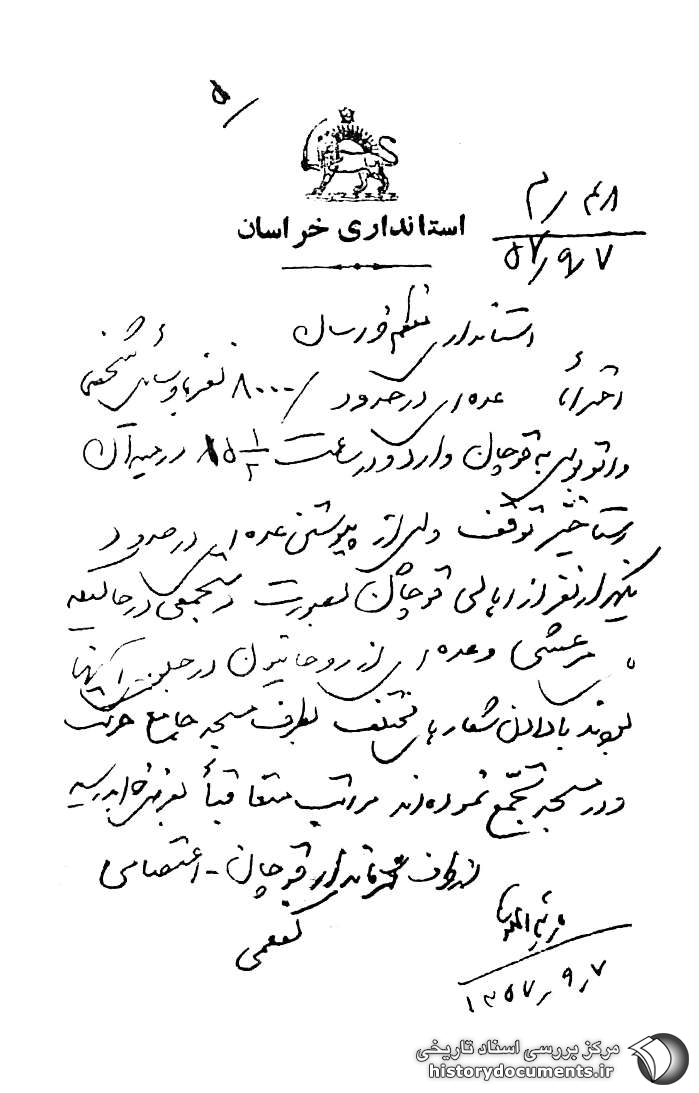 ۵/
استانداری خراسان
۴۸م/
۵۷/۹/۷
استانداری معظم خراسان
احتراماً عده‌ای در حدود ۸۰۰۰/ نفر با وسائل شخصی
و اتوبوس به قوچان وارد و در ساعت ۱۵ ۱/۲ در میدان
رستاخیز توقف و پس از پیوستن عده‌ای در حدود
یکهزار نفر از اهالی قوچان بصورت دستجمعی در حالیکه
مرعشی و عده‌ای از روحانیون در جلو آنها
بودند با دادن شعارهای مختلف بطرف مسجد جامع حرکت
و در مسجد تجمع نموده‌اند مراتب متعاقباً بعرض خواهد رسید
از طرف فرماندار قوچان - اعتصامی
۱۳۵۷/۹/۷
مرکز بررسی اسناد تاریخی
historydocuments.ir